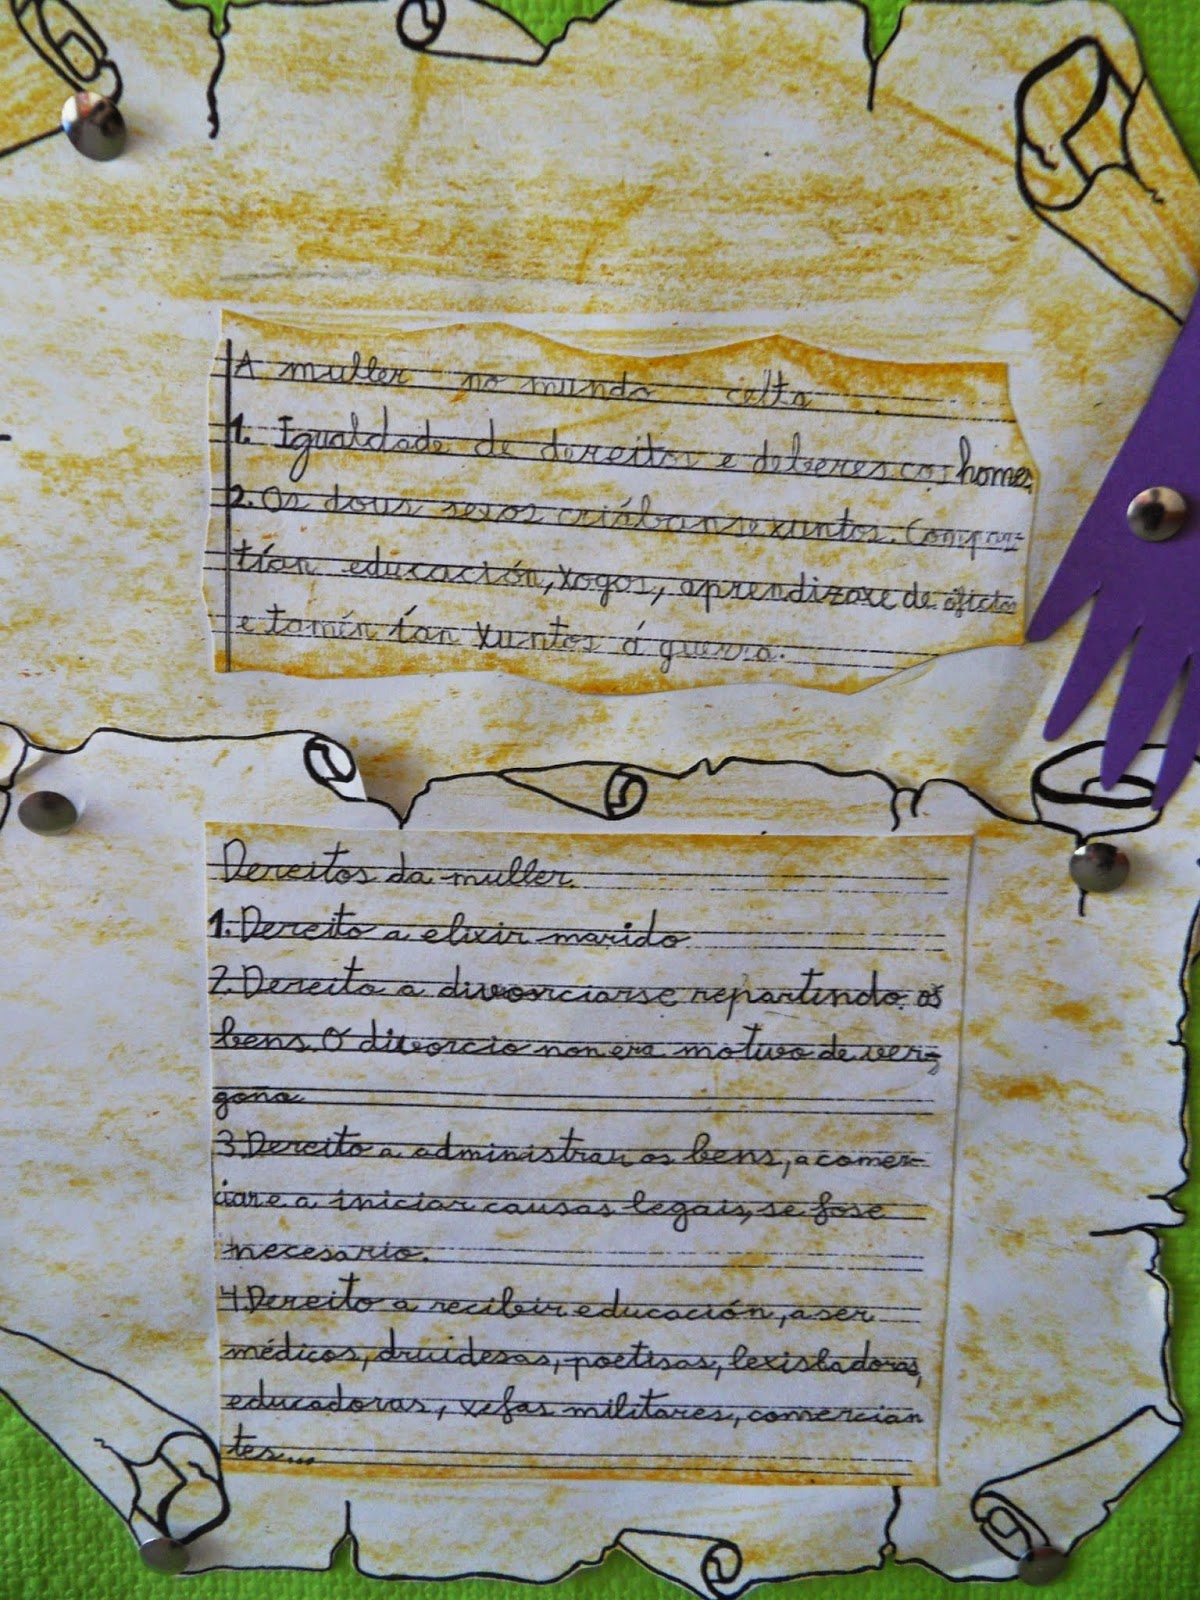 A muller no mundo celta
1. Igualdade de dereitos e deberes cos homes.
2. Os dous sexos criábanse xuntos. Compar-
tían educación, xogos, aprendizaxe de oficios
e tamén ían xuntos á guerra.
Dereitos da muller.
1. Dereito a elixir marido.
2. Dereito a divorciarse repartindo os
bens. O divorcio non era motivo de ver-
goña
3. Dereito a administrar os bens, a comer-
ciar e a iniciar causas legais, se fose
necesario.
4. Dereito a recibir educación, a ser
médicos, druidesas, poetisas, lexisladoras,
educadoras, xefas militares, comercian
tes...